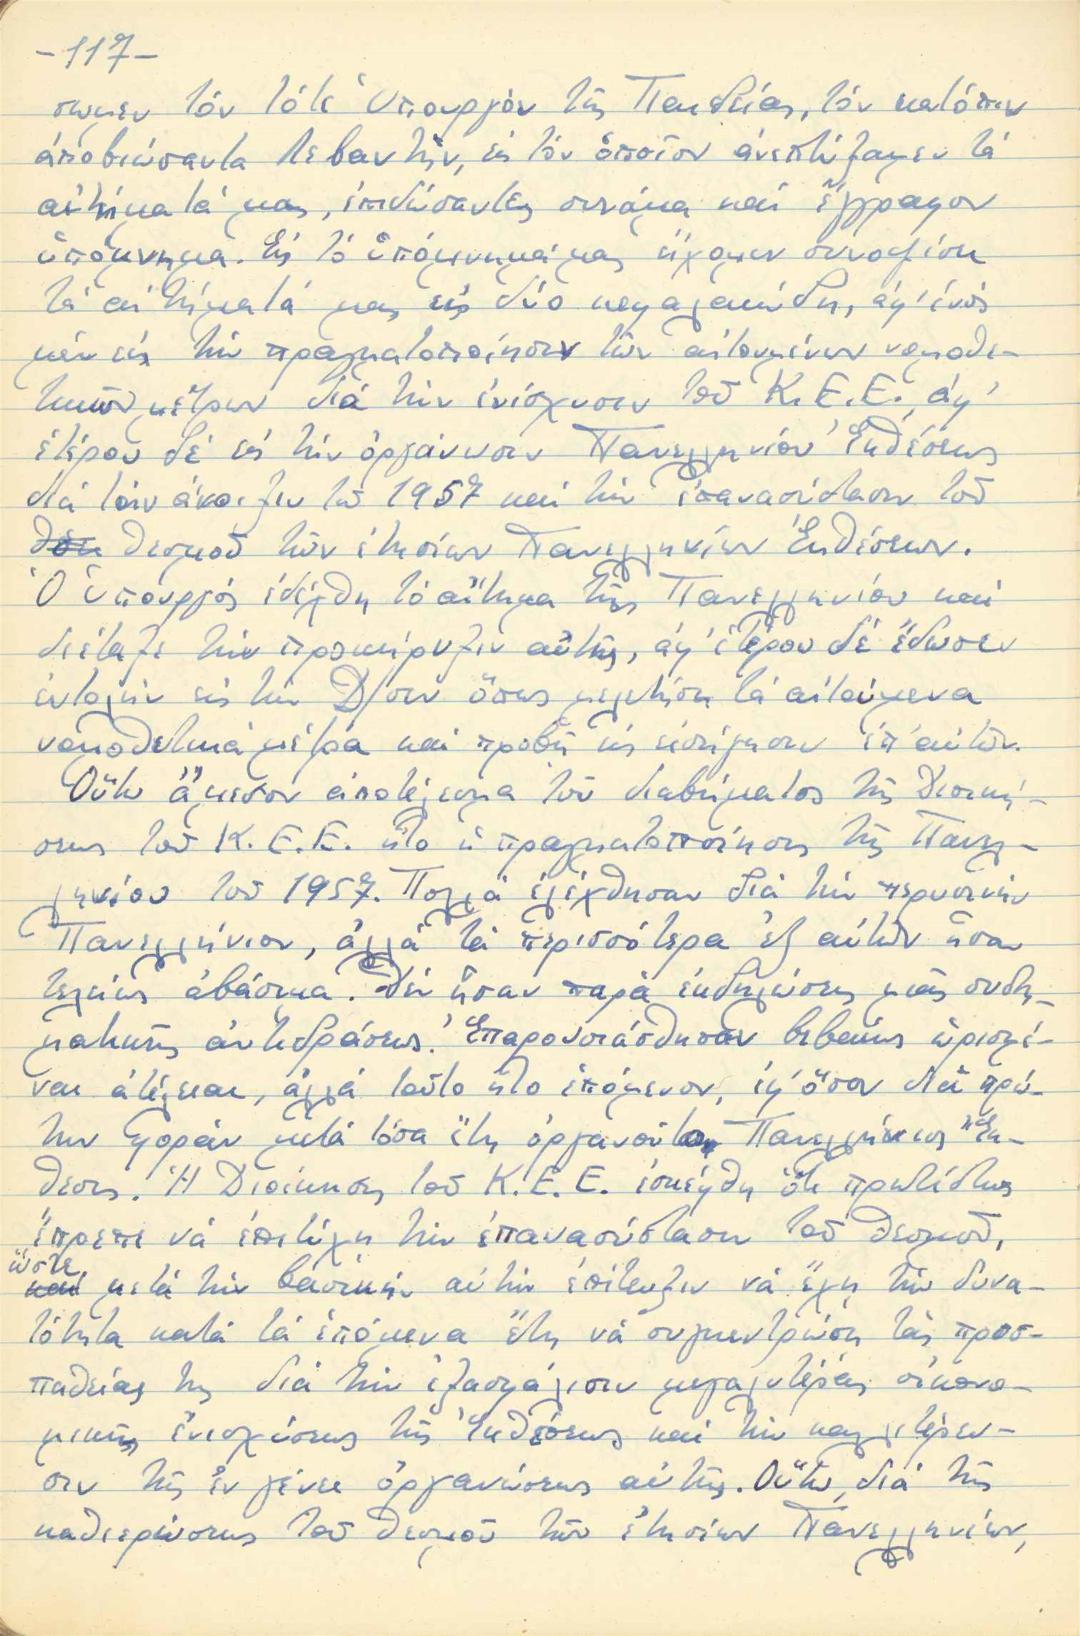 -117-
σωμεν τόν τότε Ὑπουργόν τῆς Παιδείας, τόν κατόπιν
ἀποβιώσαντα Λεβαντῆν, εἰς τόν ὁποῖον ἀνεπτύξαμεν τά
αἰτήματά μας, ἐπιδώσαντες συνάμα καί ἔγγραφον
ὑπόμνημα. Εἰς τό ὑπόμνημά μας εἴχομεν συνοψίσει
τά αἰτήματά μας εἰς δύο κεφαλαιώδη, ἀφ' ἑνός
μέν εἰς τήν πραγματοποίησιν τῶν αἰτουμένων νομοθε-
τικῶν μέτρων διά τήν ἐνίσχυσιν τοῦ Κ.Ε.Ε., ἀφ'
ἑτέρου δέ εἰς τήν ὀργάνωσιν Πανελληνίου Ἐκθέσεως
διά τήν ἄνοιξιν τοῦ 1957 καί τήν ἐπανασύστασιν τοῦ
θεσμοῦ τῶν ἐτησίων Πανελληνίων Ἐκθέσεων.
Ὁ Ὑπουργός ἐδέχθη τό αἴτημα τῆς Πανελληνίου καί
διέταξε τήν προκήρυξιν αὐτῆς, ἀφ' ἑτέρου δέ ἔδωσεν
ἐντολήν εἰς τήν Δ/σιν ὅπως μελετήση τά αἰτούμενα
νομοθετικά μέτρα καί προβῆ εἰς εἰσήγησιν ἐπ' αὐτῶν.
Οὕτω ἄμεσον ἀποτέλεσμα τοῦ διαβήματος τῆς Διοική-
σεως τοῦ Κ.Ε.Ε. ἦτο ἡ πραγματοποίησις τῆς Πανελ-
ληνίου τοῦ 1957. Πολλά ἐλέχθησαν διά τήν περυσινήν
Πανελλήνιον, ἀλλά τά περισσότερα ἐξ αὐτῶν ἦσαν
τελείως ἀβάσιμα. Δέν ἦσαν παρά ἐκδηλώσεις μιᾶς συστη-
ματικῆς ἀντιδράσεως. Ἐπαρουσιάσθησαν βεβαίως ὡρισμέ-
ναι ἀτέλειαι, ἀλλά τοῦτο ἦτο ἑπόμενον, ἐφ' ὅσον διά πρώ-
την φοράν μετά τόσα ἔτη ὀργανοῦτο Πανελλήνιος Ἔκ-
θεσις. Ἡ Διοίκησις τοῦ Κ.Ε.Ε. ἐσκέφθη ὅτι πρωτίστως
ἔπρεπε νά ἐπιτύχη τήν ἐπανασύστασιν τοῦ θεσμοῦ,
ὥστε μετά τήν βασικήν αὐτήν ἐπίτευξιν νά ἔχη τήν δυνα-
τότητα κατά τά ἑπόμενα ἔτη νά συγκεντρώση τάς προσ-
παθείας της διά τήν ἐξασφάλισιν μεγαλυτέρας οἰκονο-
μικῆς ἐνισχύσεως τῆς Ἐκθέσεως καί τήν καλλιτέρευ-
σιν τῆς ἐν γένει ὀργανώσεως αὐτῆς. Οὕτω, διά τῆς
καθιερώσεως τοῦ θεσμοῦ τῶν ἐτησίων Πανελληνίων,